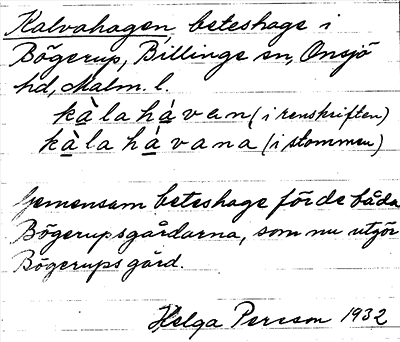 Kalvahagen beteshage i
Bögerup, Billinge sn, Onsjö
hd, Malm. l.
kàlahávan (i renskriften)
kàlahávana (i stommen)
Gemensam beteshage för de båda
Bögerupsgårdarna, som nu utgör
Bögerups gård.
Helga Persson 1932